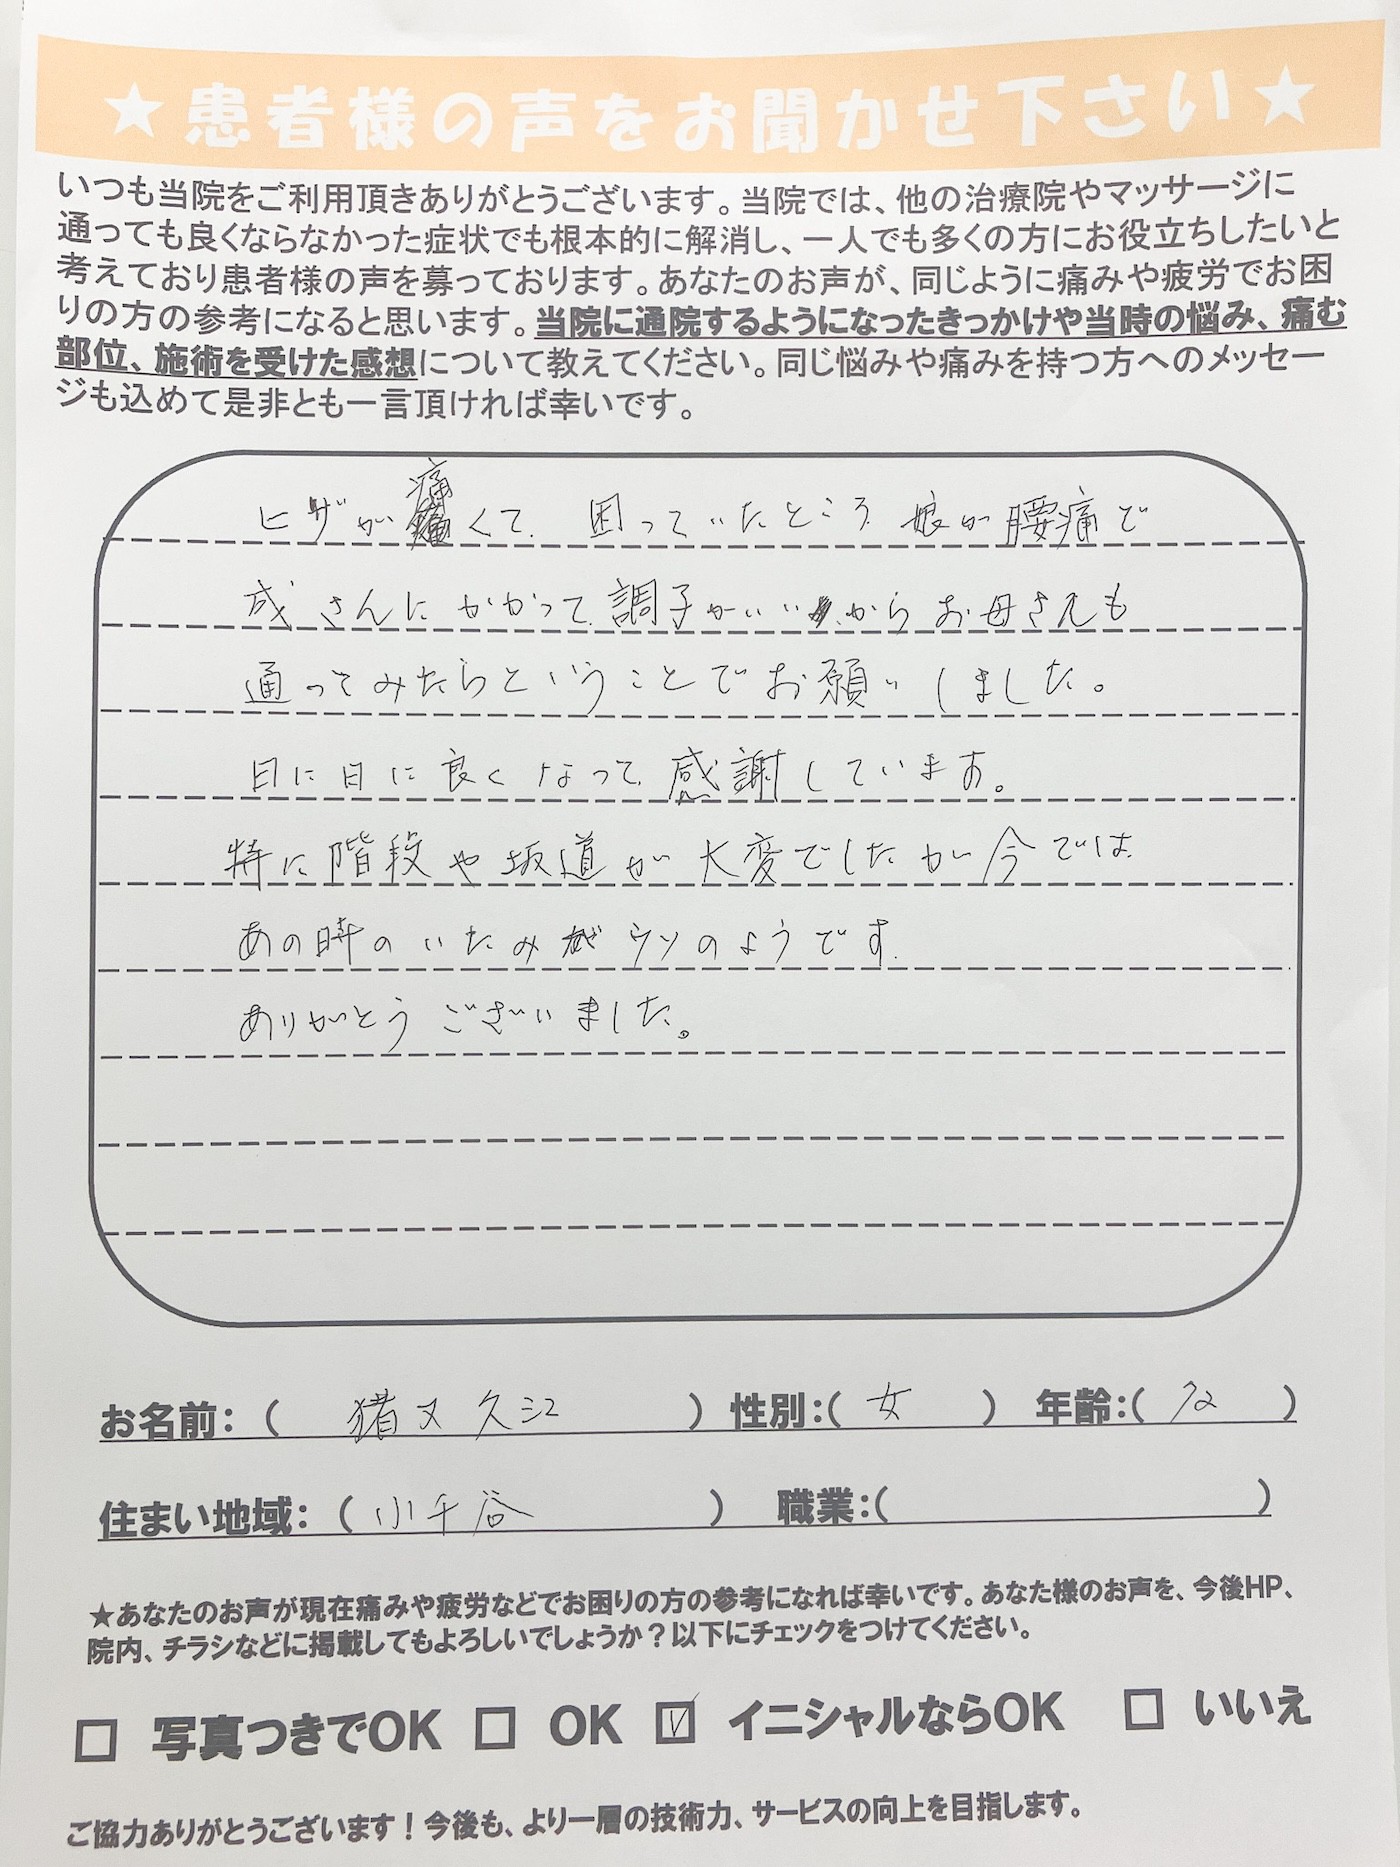 ★患者様の声をお聞かせ下さい★
いつも当院をご利用頂きありがとうございます。当院では、他の治療院やマッサージに
通っても良くならなかった症状でも根本的に解消し、一人でも多くの方にお役立ちしたいと
考えており患者様の声を募っております。あなたのお声が、同じように痛みや疲労でお困
りの方の参考になると思います。当院に通院するようになったきっかけや当時の悩み、痛む
部位、施術を受けた感想について教えてください。同じ悩みや痛みを持つ方へのメッセー
ジも込めて是非とも一言頂ければ幸いです。
ヒザが痛くて、困っていたところ、娘が腰痛で
成さんにかかって、調子がいいからお母さんも
通ってみたらということでお願いしました。
日に日に良くなって、感謝しています。
特に階段や坂道が大変でしたが今では、
あの時のいたみがウソのようです。
ありがとうございました。
お名前：（ 猪又久江 ）性別：（ 女 ）年齢：（ 72 ）
住まい地域：（ 小千谷 ）職業：（ ）
★あなたのお声が現在痛みや疲労などでお困りの方の参考になれば幸いです。あなた様のお声を、今後HP、
院内、チラシなどに掲載してもよろしいでしょうか？以下にチェックをつけてください。
□ 写真つきでOK □ OK ☑ イニシャルならOK □ いいえ
ご協力ありがとうございます！今後も、より一層の技術力、サービスの向上を目指します。